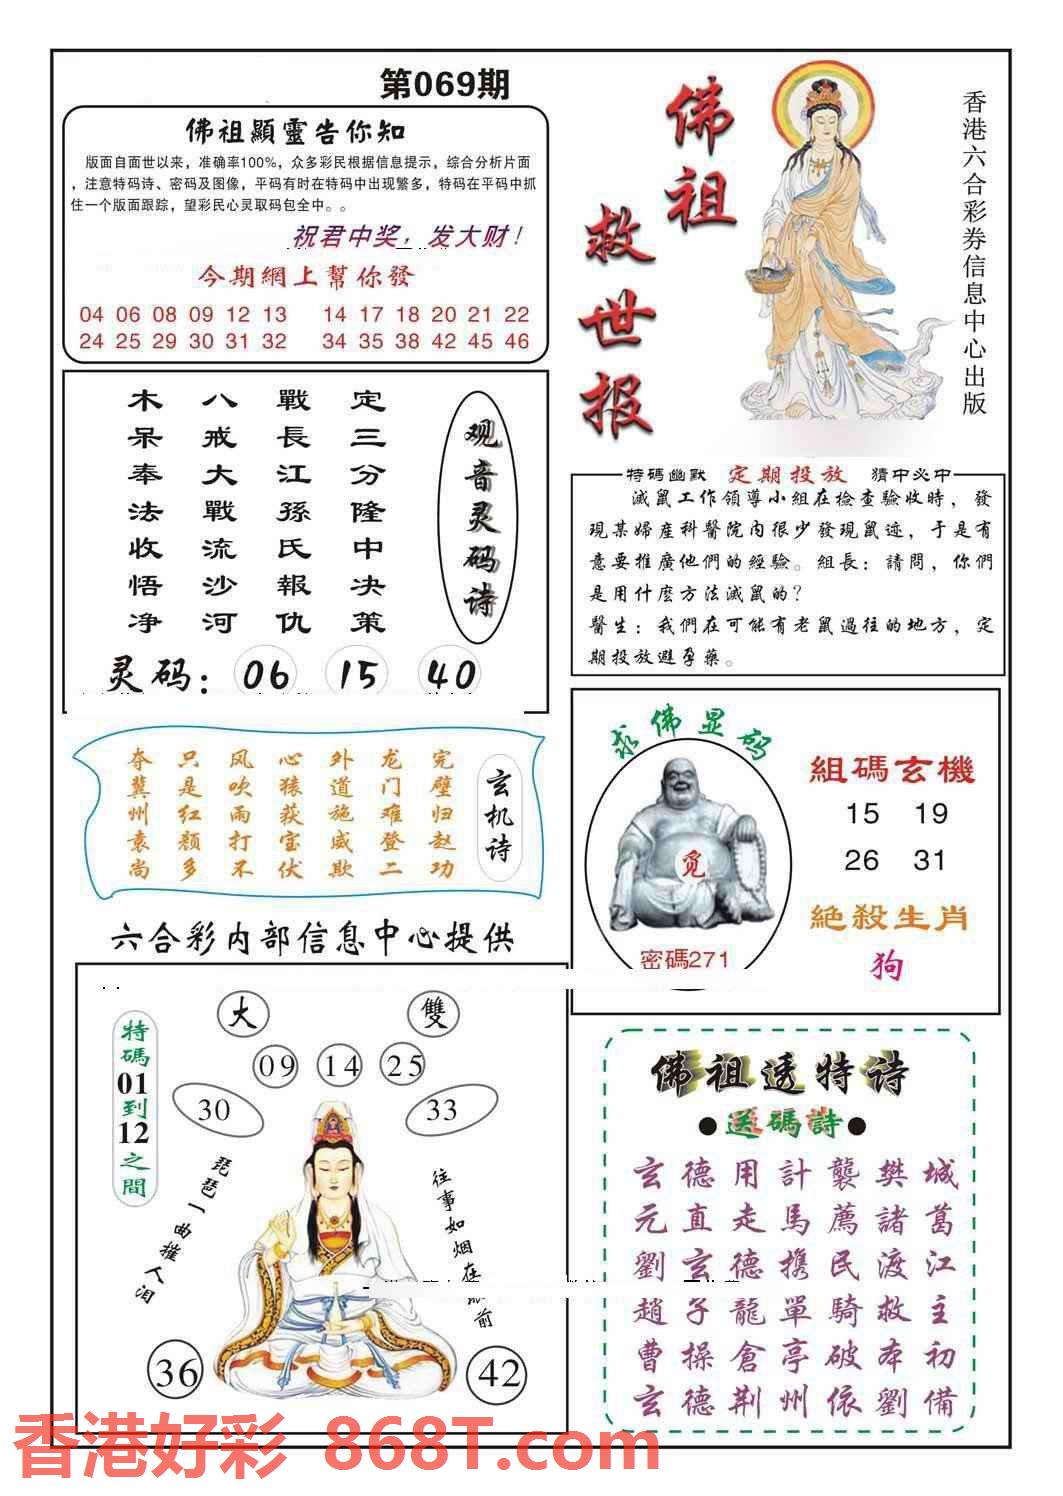 第069期
佛祖顯靈告你知
版面自面世以来，准确率100%，众多彩民根据信息提示，综合分析片面
，注意特码诗、密码及图像，平码有时在特码中出现繁多，特码在平码中抓
住一个版面跟踪，望彩民心灵取码包全中。。
祝君中奖，发大财！
今期網上幫你發
04 06 08 09 12 13 14 17 18 20 21 22
24 25 29 30 31 32 34 35 38 42 45 46
佛祖
救世报
香港六合彩券信息中心出版
定三分隆中决策
戰長江孫氏報仇
八戒大戰流沙河
木呆奉法收悟净
观音灵码诗
灵码：06 15 40
特碼幽默 定期投放 猜中必中
滅鼠工作領導小組在檢查驗收時，發
現某婦産科醫院内很少發現鼠迹，于是有
意要推廣他們的經驗。組長：請問，你們
是用什麽方法滅鼠的？
醫生：我們在可能有老鼠過往的地方，定
期投放避孕藥。
玄机诗
完璧归赵功
龙门难登二
外道施威欺
心猿获宝伏
风吹雨打不
只是红颜多
夺冀州袁尚
求佛显码
觅
密碼271
組碼玄機
15 19
26 31
絕殺生肖
狗
六合彩内部信息中心提供
特碼01到12之間
大 雙
09 14 25
30 33
琵琶一曲摧人泪
往事如烟在眼前
36 42
佛祖透特诗
●送碼詩●
玄德用計襲樊城
元直走馬薦諸葛
劉玄德携民渡江
趙子龍單騎救主
曹操倉亭破本初
玄德荆州依劉備
香港好彩 868T.com